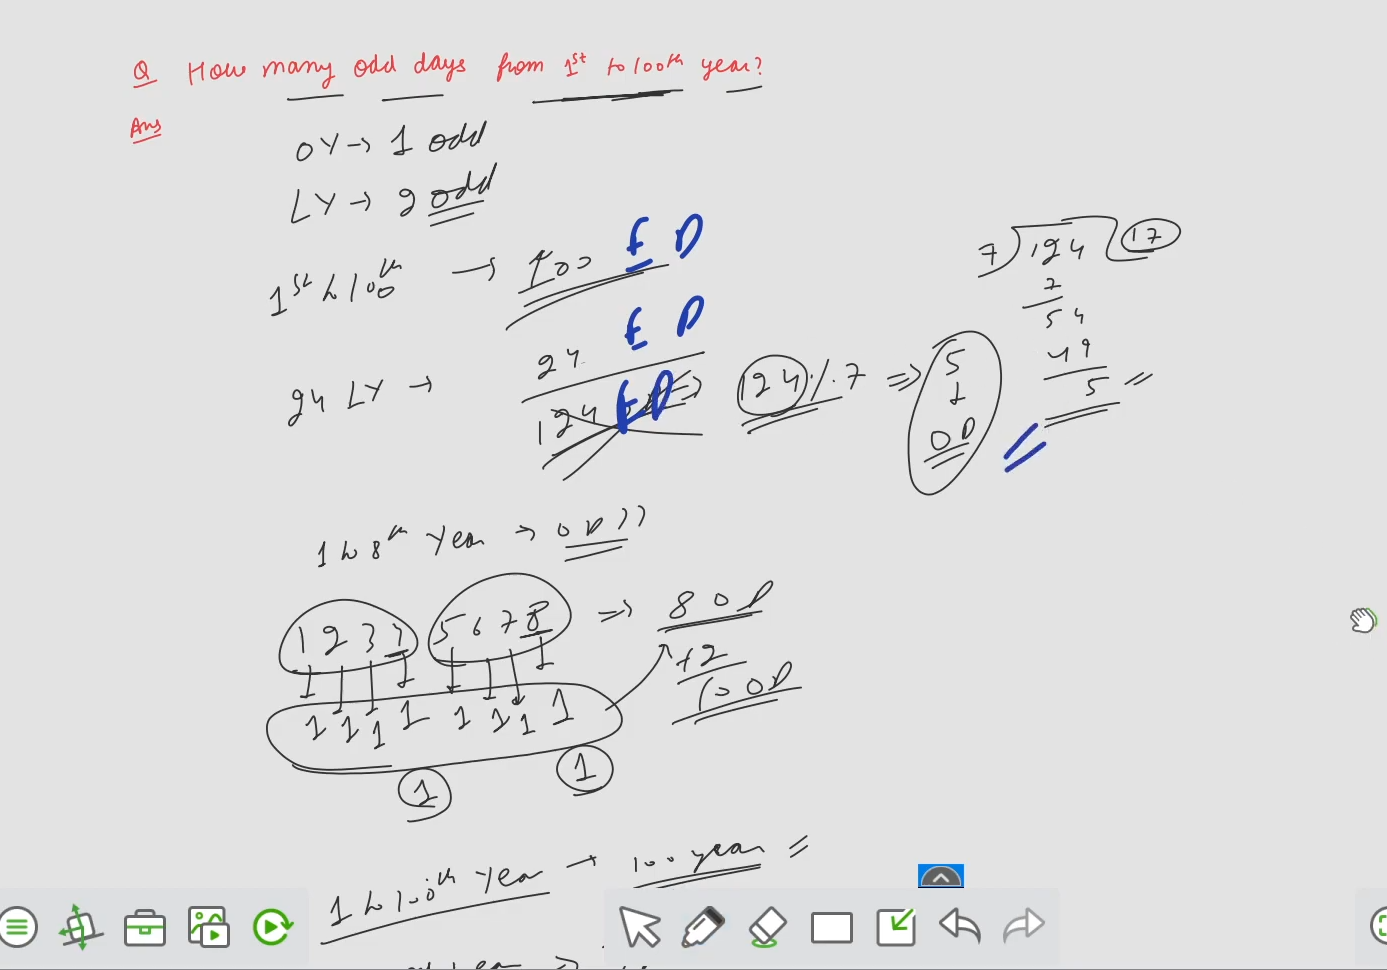 Q How many odd days from 1st to 100th year?
Ans
OY → 1 odd
LY → 2 odd
1st to 100th → 100 E D
24 LY → 24 E D
124 E D ⇒ 124 % 7 ⇒ 5 ↓ OD
7 ) 124 ( 17
7
54
49
5
1 to 8th year → OD ??
1 2 3 4 5 6 7 8 ⇒ 8 OD
+2
10 OD
1 1 1 1 1 1 1 1
1 1
1 to 100th year → 100 year =